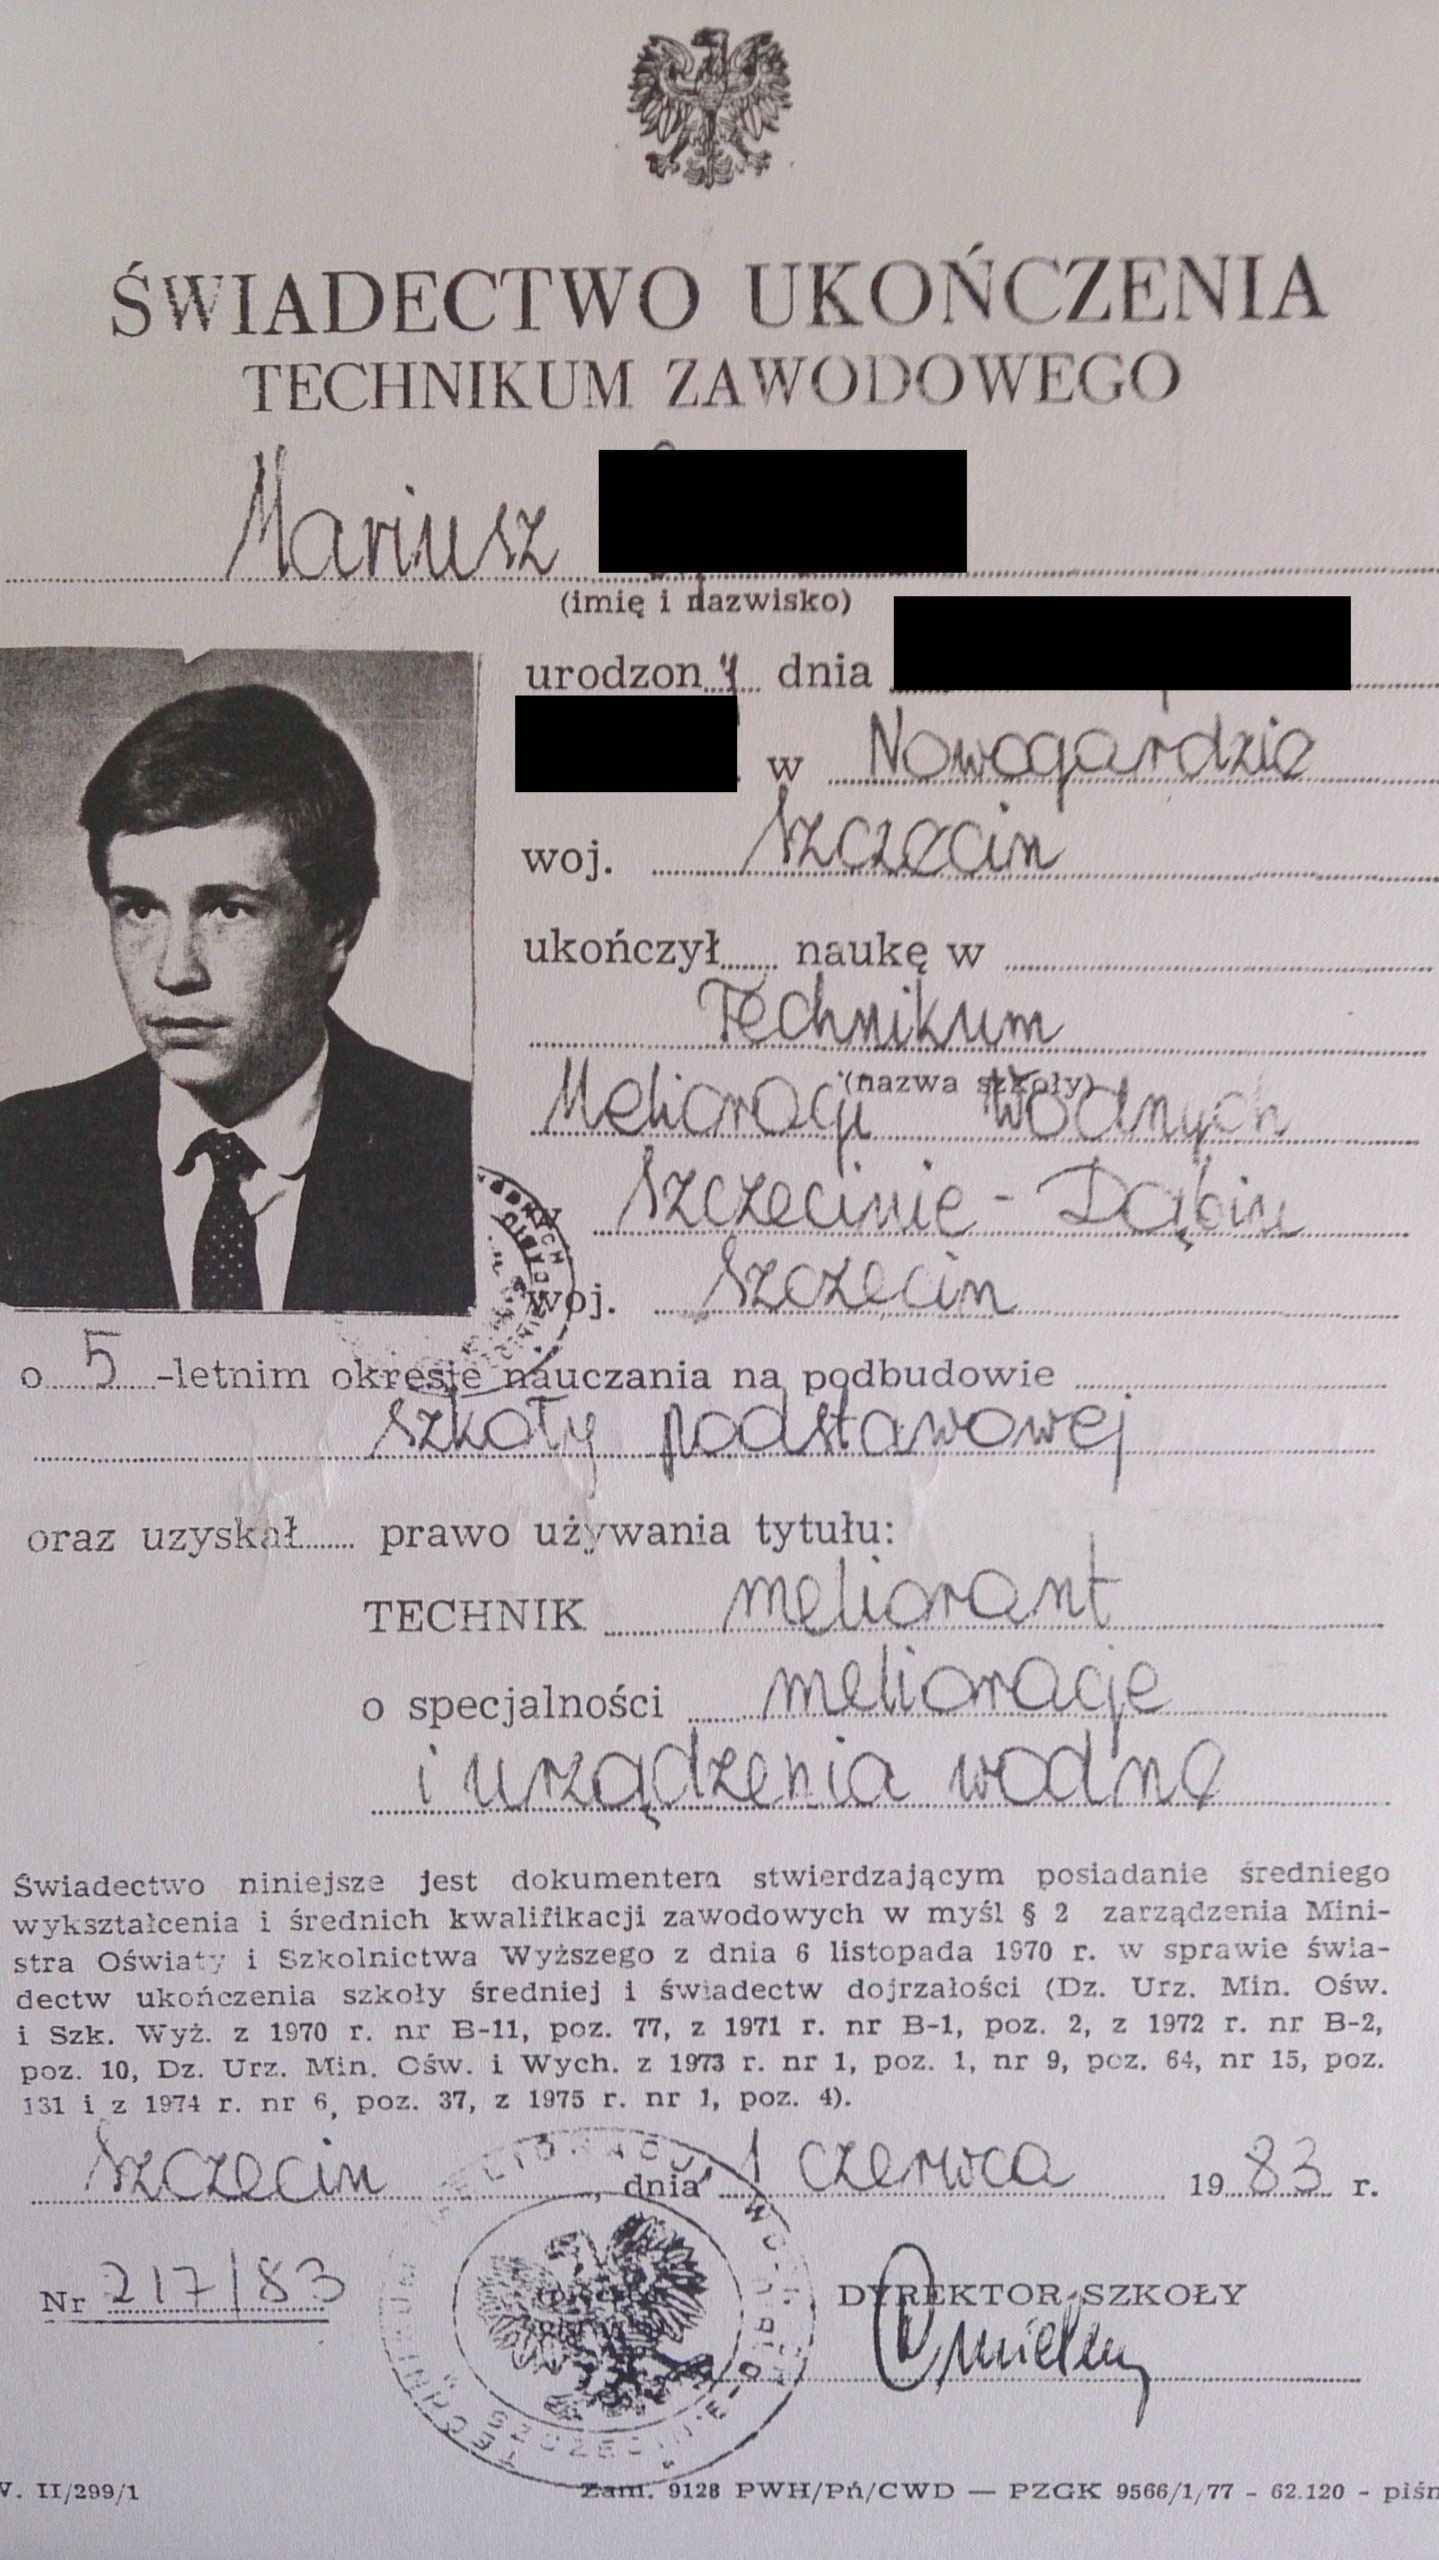 ŚWIADECTWO UKOŃCZENIA
TECHNIKUM ZAWODOWEGO
Mariusz
(imię i nazwisko)
urodzony dnia
w Nowogardzie
woj. Szczecin
ukończył naukę w
Technikum
(nazwa szkoły)
Melioracji Wodnych
w Szczecinie-Dąbiu
woj. Szczecin
o 5-letnim okresie nauczania na podbudowie
szkoły podstawowej
oraz uzyskał prawo używania tytułu:
TECHNIK meliorant
o specjalności melioracje
i urządzenia wodne
Świadectwo niniejsze jest dokumentem stwierdzającym posiadanie średniego
wykształcenia i średnich kwalifikacji zawodowych w myśl § 2 zarządzenia Mini-
stra Oświaty i Szkolnictwa Wyższego z dnia 6 listopada 1970 r. w sprawie świa-
dectw ukończenia szkoły średniej i świadectw dojrzałości (Dz. Urz. Min. Ośw.
i Szk. Wyż. z 1970 r. nr B-11, poz. 77, z 1971 r. nr B-1, poz. 2, z 1972 r. nr B-2,
poz. 10, Dz. Urz. Min. Ośw. i Wych. z 1973 r. nr 1, poz. 1, nr 9, poz. 64, nr 15, poz.
131 i z 1974 r. nr 6, poz. 37, z 1975 r. nr 1, poz. 4).
Szczecin, dnia 1 czerwca 1983 r.
Nr 217/83
DYREKTOR SZKOŁY
V. II/299/1
Zam. 9128 PWH/Pń/CWD — PZGK 9566/1/77 - 62.120 - piśm